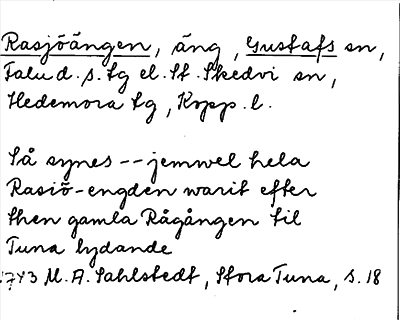 Rasjöängen, äng, Gustafs sn,
Falu d. s. tg el. St. Skedvi sn,
Hedemora tg, Kopp. l.
Så synes -- jemwel hela
Rasiö-engden warit efter
then gamla Rågången til
Tuna lydande
1743 M. A. Sahlstedt, Stora Tuna, s. 18